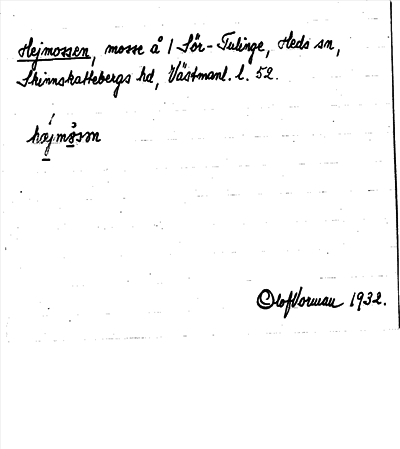 Hejmossen, mosse å 1 Sör-Tulinge, Heds sn,
Skinnskattebergs hd, Västmanl. l. 52.
hæjmåsən
Olof Vorman 1932.